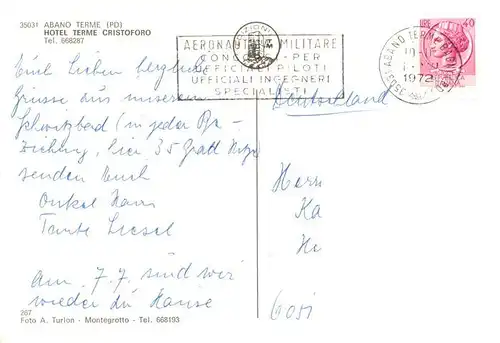 35031 ABANO TERME (PD)
HOTEL TERME CRISTOFORO
Tel. 668287
AERONAUTICA MILITARE
CONCORSI PER
UFFICIALI PILOTI
UFFICIALI INGEGNERI
SPECIALISTI
35031 ABANO TERME
1972
LIRE 40
Deutschland
Euch lieben herzliche
Grüsse aus unserem
Schwitzbad (in jeder Be-
ziehung, hier 35 Grad Hitze)
senden Euch
Onkel Hans
Tante Liesel
Am 7.7. sind wir
wieder zu Hause
Herrn
Ka
He
6051
267
Foto A. Turlon - Montegrotto - Tel. 668193